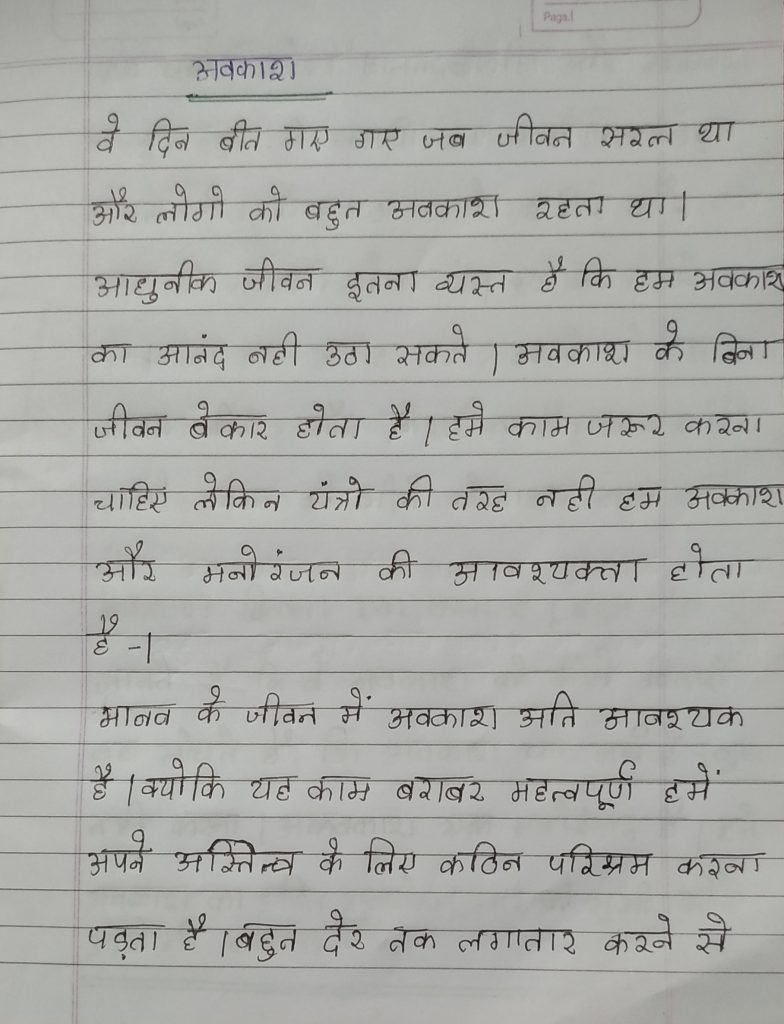 Page.|
अवकाश
वे दिन बीत गए गए जब जीवन सरल था
और लोगो को बहुत अवकाश रहता था|
आधुनीक जीवन इतना व्यस्त है कि हम अवकाश
का आनंद नही उठा सकते | अवकाश के बिना
जीवन बेकार होता है | हमे काम जरूर करना
चाहिए लेकिन यंत्रो की तरह नही हम अवकाश
और मनोरंजन की आवश्यक्ता होता
है -|
मानव के जीवन में अवकाश अति आवश्यक
है | क्योकि यह काम बराबर महत्वपूर्ण हमें
अपने अस्तित्व के लिए कठिन परिश्रम करना
पड़ता है | बहुत देर तक लगातार करने से